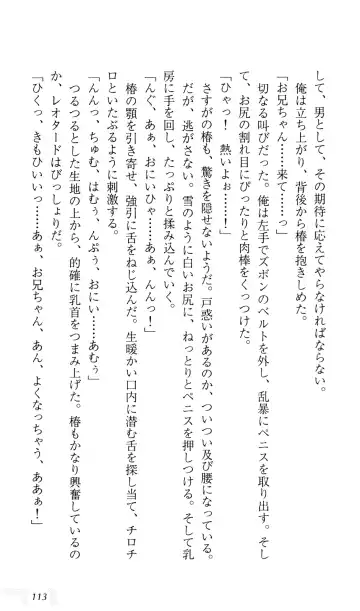 して、男として、その期待に応えてやらなければならない。
俺は立ち上がり、背後から椿を抱きしめた。
「お兄ちゃん……来てーっ」
切なる叫びだった。俺は左手でズボンのベルトを外し、乱暴にペニスを取り出す。そし
て、お尻の割れ目にぴったりと肉棒をくっつけた。
「ひゃっ！　熱いよぉ……！」
さすがの椿も、驚きを隠せないようだ。戸惑いがあるのか、ついつい及び腰になっている。
だが、逃がさない。雪のように白いお尻に、ねっとりとペニスを押しつける。そして乳
房に手を回し、たっぷりと揉み込んでいく。
「んぐ、あぁ、おにいひゃ……あぁ、んんっ！」
椿の顎を引き寄せ、強引に舌をねじ込んだ。生暖かい口内に潜む舌を探し当て、チロチ
ロといたぶるように刺激する。
「んんっ、ちゅむ、はむぅ、んぷぅ、おにい……あむぅ」
つるつるとした生地の上から、的確に乳首をつまみ上げた。椿もかなり興奮しているの
か、レオタードはびっしょりだ。
「ひくっ、きもひいいっ……あぁ、お兄ちゃん、あん、よくなっちゃう、ああぁ！」
113